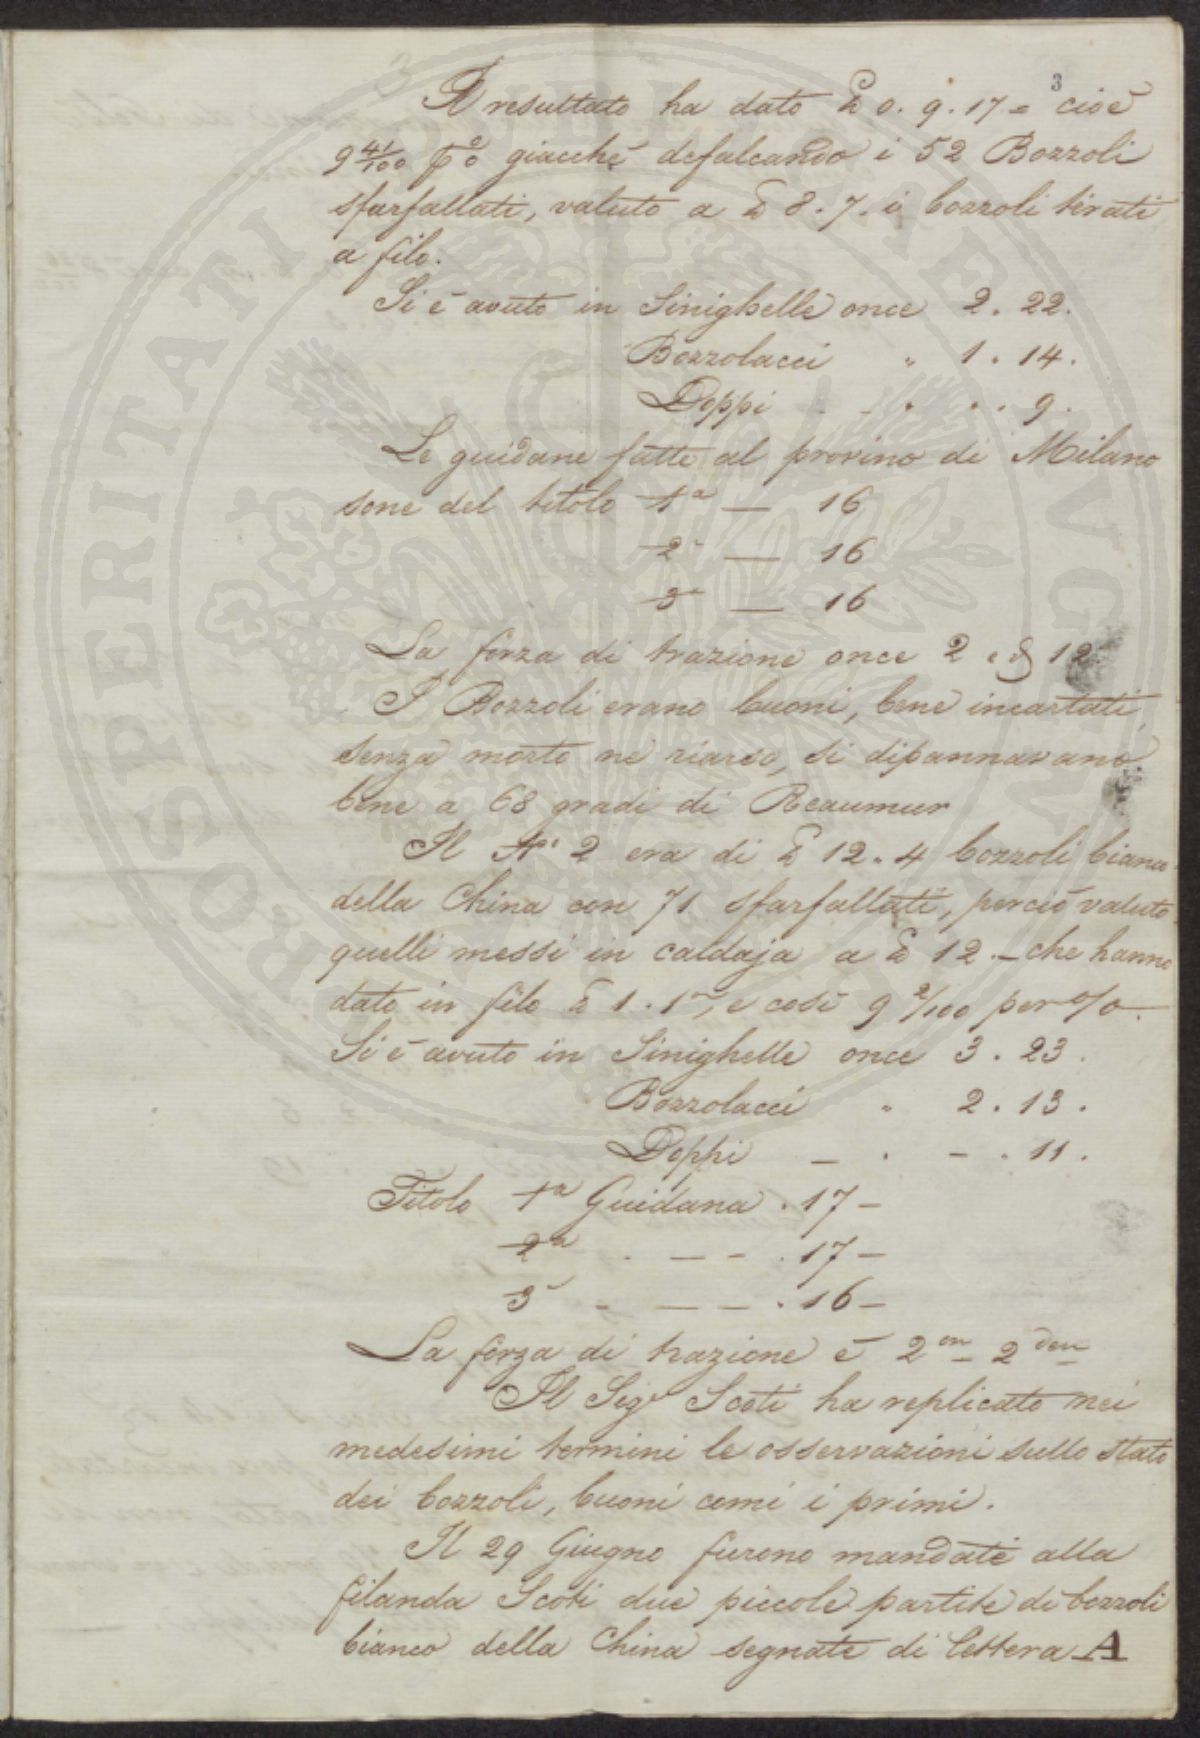 3
Il resultato ha dato ₤ 0. 9. 17 = cioè
9 41/100 p% giacchè defalcando i 52 Bozzoli
sfarfallati, valuto a ₤ 8. 7. i bozzoli tirati
a filo.
Si è avuto in Sinighelle once 2. 22.
Bozzolacci " 1. 14.
Doppi - - . . . 9.
Le guidane fatte al provino di Milano
sone del titolo 1ª — 16
2ª — 16
3ª — 16
La forza di trazione once 2 e 12
I Bozzoli erano buoni, bene incartati,
senza morto nè riarso, si dipannavano
bene a 68 gradi di Reaumur
Il Nº 2 era di ₤ 12. 4 bozzoli bianco
della China con 71 sfarfallati, perciò valuto
quelli messi in caldaja a ₤ 12. — che hanno
dato in filo ₤ 1. 1 —, e così 9 2/100 per %.
Si è avuto in Sinighelle once 3. 23.
Bozzolacci " 2. 13.
Doppi — . — . 11.
Titolo 1ª Guidana . 17 —
2ª . — — . 17 —
3ª - — — . 16 —
La forza di trazione è 2 on 2 den
Il Sigr Scoti ha replicato nei
medesimi termini le osservazioni sullo stato
dei bozzoli, buoni comi i primi.
Il 29 Giugno furono mandate alla
filanda Scoti due piccole partite di bozzoli
bianco della China segnate di lettera A
PROSPERITATI PUBLICAE AUGENDAE